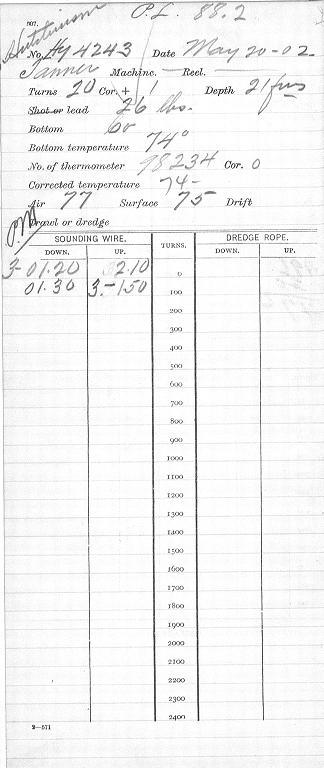 P.L. 88.2
807.
Hutchinson
No. Hy 4243 Date May 20-02.
Tanner Machine. — Reel. —
Turns 20 Cor. + 1 Depth 21 fms
Shot or lead 26 lbs.
Bottom Co
Bottom temperature 74°
No. of thermometer 98234 Cor. 0
Corrected temperature 74-
Air 77 Surface 75 Drift
P.M.
Trawl or dredge
SOUNDING WIRE. TURNS. DREDGE ROPE.
DOWN. UP. DOWN. UP.
3-01.20 2.10 0
01.30 3.-1.50 100
200
300
400
500
600
700
800
900
1000
1100
1200
1300
1400
1500
1600
1700
1800
1900
2000
2100
2200
2300
2400
2—571